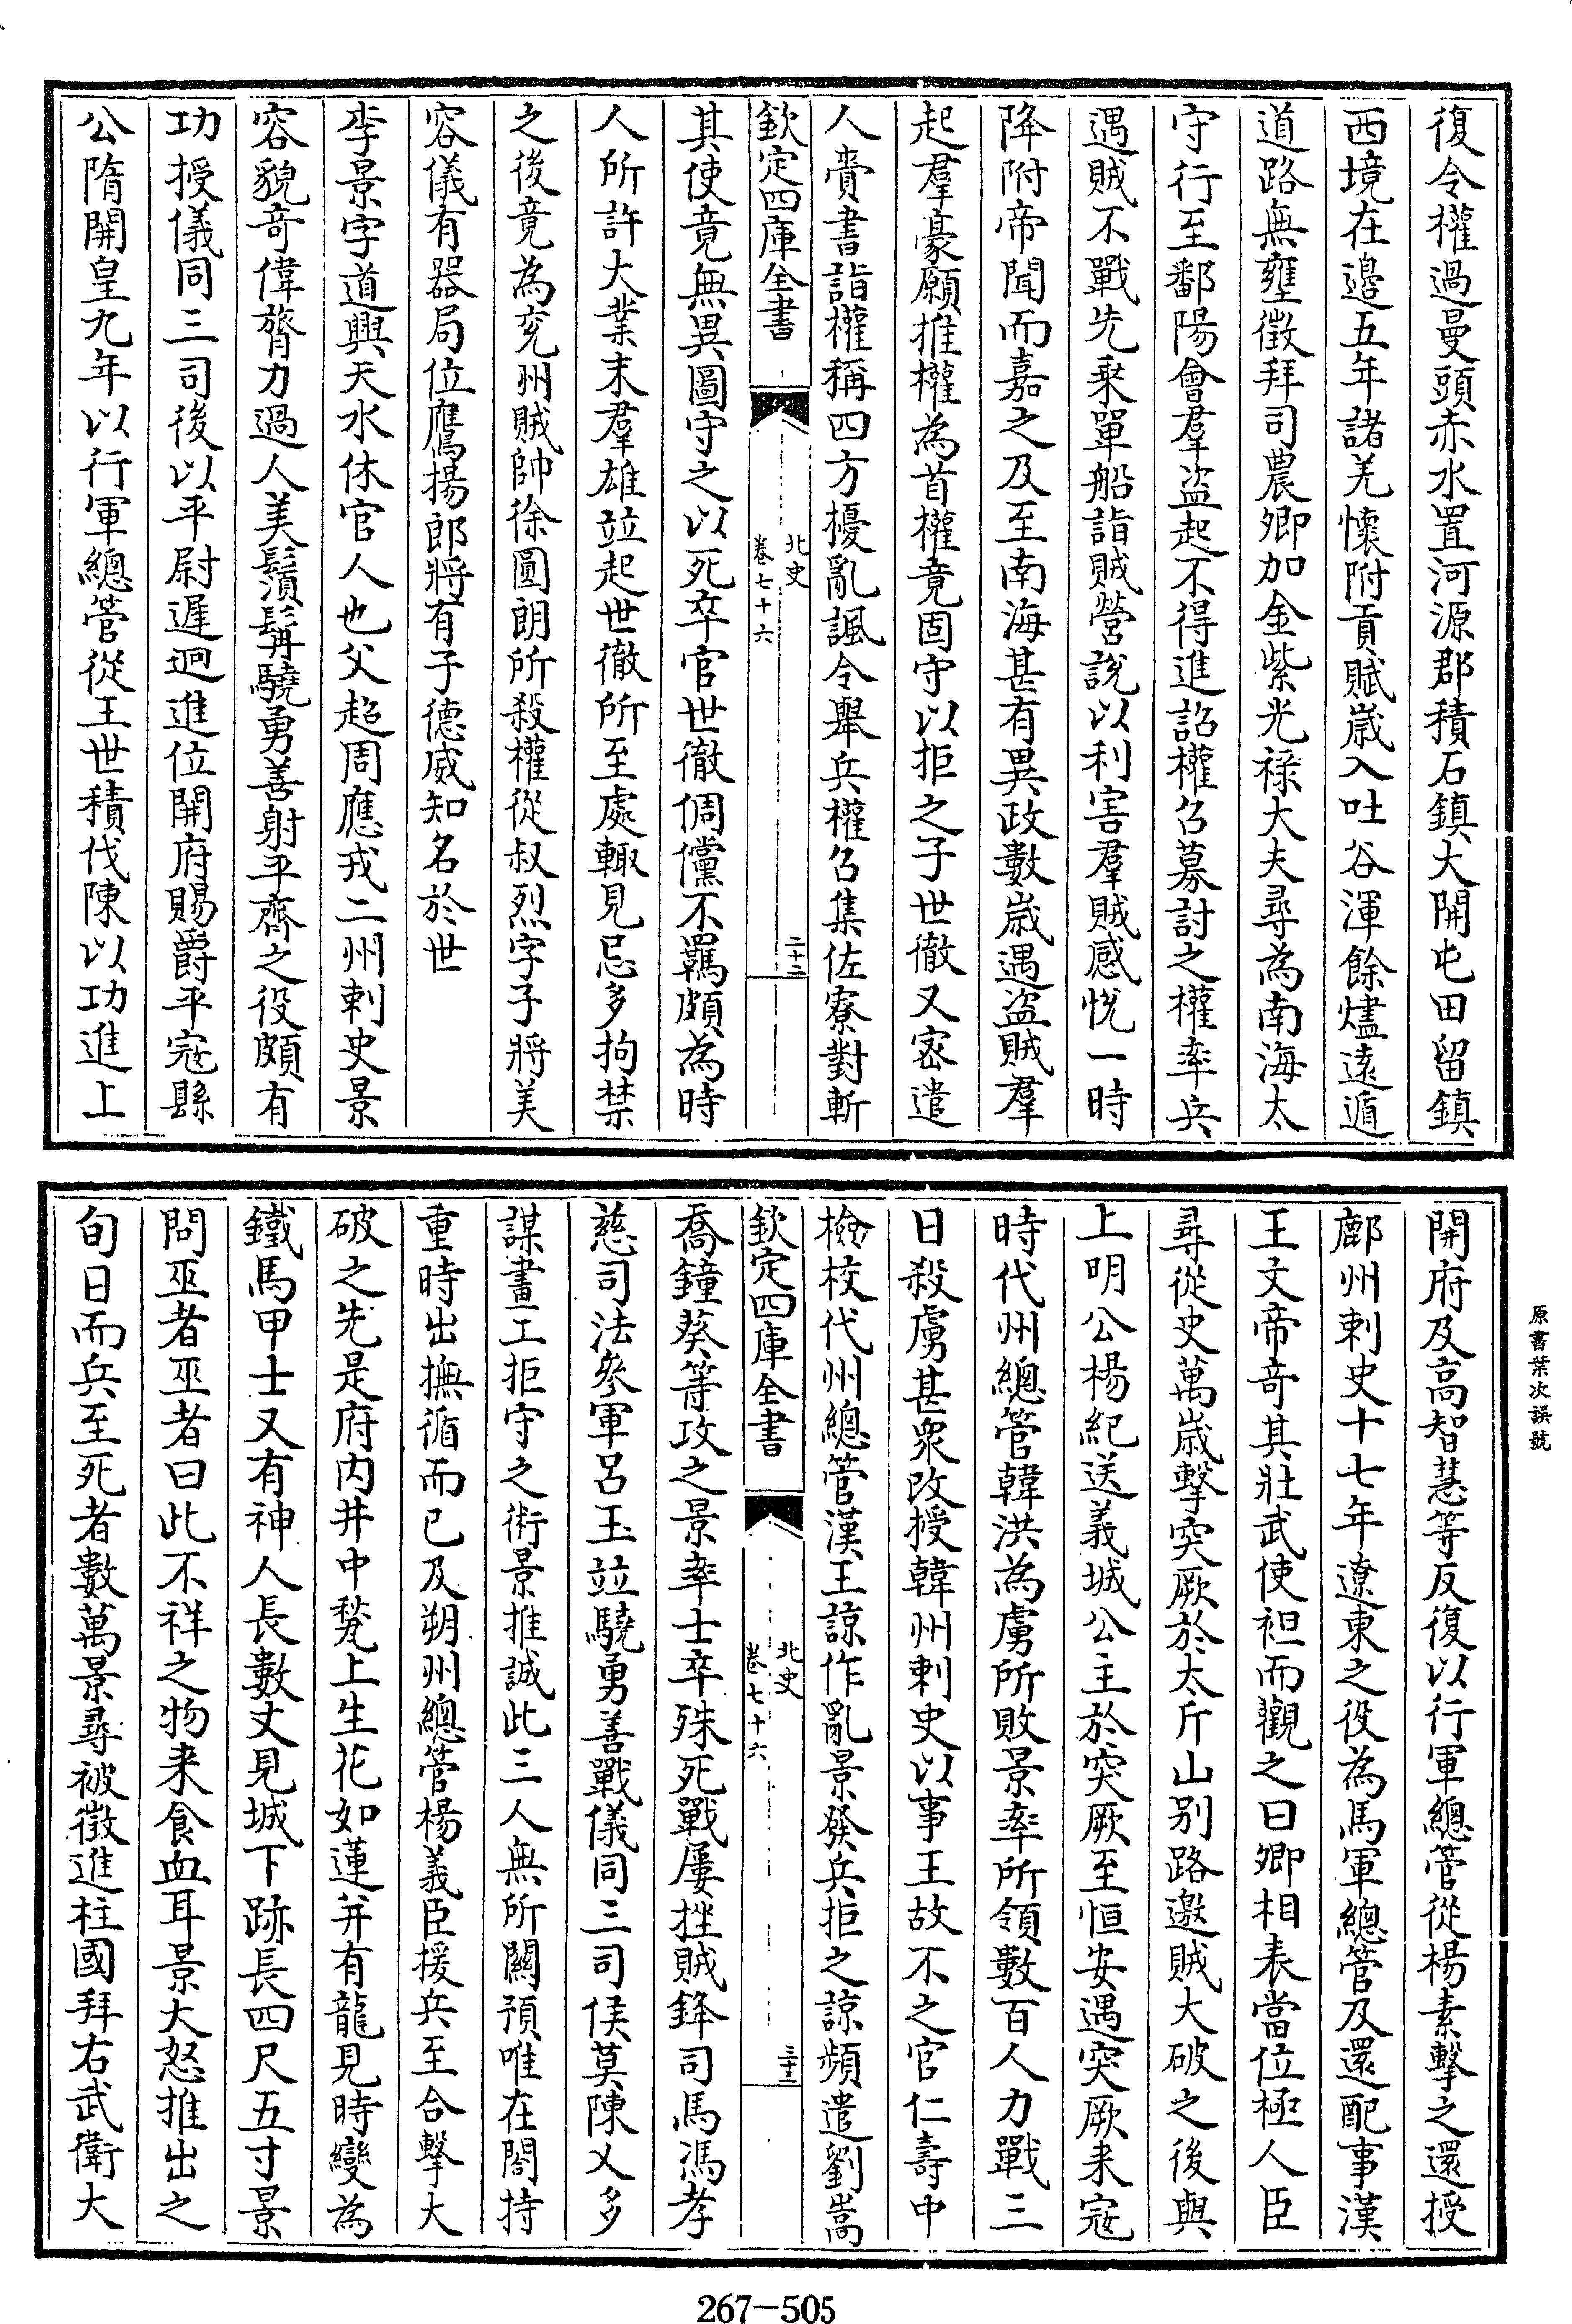 復令權過曼頭赤水置河源郡積石鎮大開屯田留鎮
西境在邊五年諸羌懷附貢賦歲入吐谷渾餘燼遠遁
道路無壅徵拜司農卿加金紫光祿大夫尋為南海太
守行至鄱陽會羣盜起不得進詔權召募討之權率兵
遇賊不戰先乘單船詣賊營說以利害羣賊感悅一時
降附帝聞而嘉之及至南海甚有異政數歲遇盜賊羣
起羣豪願推權為首權竟固守以拒之子世徹又密遣
人賫書詣權稱四方擾亂諷令舉兵權召集佐寮對斬
欽定四庫全書
北史
卷七十六
二十二
其使竟無異圖守之以死卒官世徹倜儻不羈頗為時
人所許大業末羣雄竝起世徹所至處輙見忌多拘禁
之後竟為兖州賊帥徐圓朗所殺權從叔烈字子將美
容儀有器局位鷹揚郎將有子德威知名於世
李景字道興天水休官人也父超周應戎二州刺史景
容貌奇偉膂力過人美鬚髯驍勇善射平齊之役頗有
功授儀同三司後以平尉遲迥進位開府賜爵平寇縣
公隋開皇九年以行軍總管從王世積伐陳以功進上
開府及高智慧等反復以行軍總管從楊素擊之還授
鄜州刺史十七年遼東之役為馬軍總管及還配事漢
王文帝奇其壯武使袒而觀之曰卿相表當位極人臣
尋從史萬歲擊突厥於太斤山別路邀賊大破之後與
上明公楊紀送義城公主於突厥至恒安遇突厥来寇
時代州總管韓洪為虜所敗景率所領數百人力戰三
日殺虜甚衆改授韓州刺史以事王故不之官仁壽中
檢校代州總管漢王諒作亂景發兵拒之諒頻遣劉嵩
欽定四庫全書
北史
卷七十六
二十三
喬鐘葵等攻之景率士卒殊死戰屢挫賊鋒司馬馮孝
慈司法參軍呂玉竝驍勇善戰儀同三司侯莫陳乂多
謀畫工拒守之術景推誠此三人無所關預唯在閤持
重時出撫循而已及朔州總管楊義臣援兵至合擊大
破之先是府内井中甃上生花如蓮并有龍見時變為
鐵馬甲士又有神人長數丈見城下跡長四尺五寸景
問巫者巫者曰此不祥之物来食血耳景大怒推出之
旬日而兵至死者數萬景尋被徵進柱國拜右武衛大
原書葉次誤號
267-505